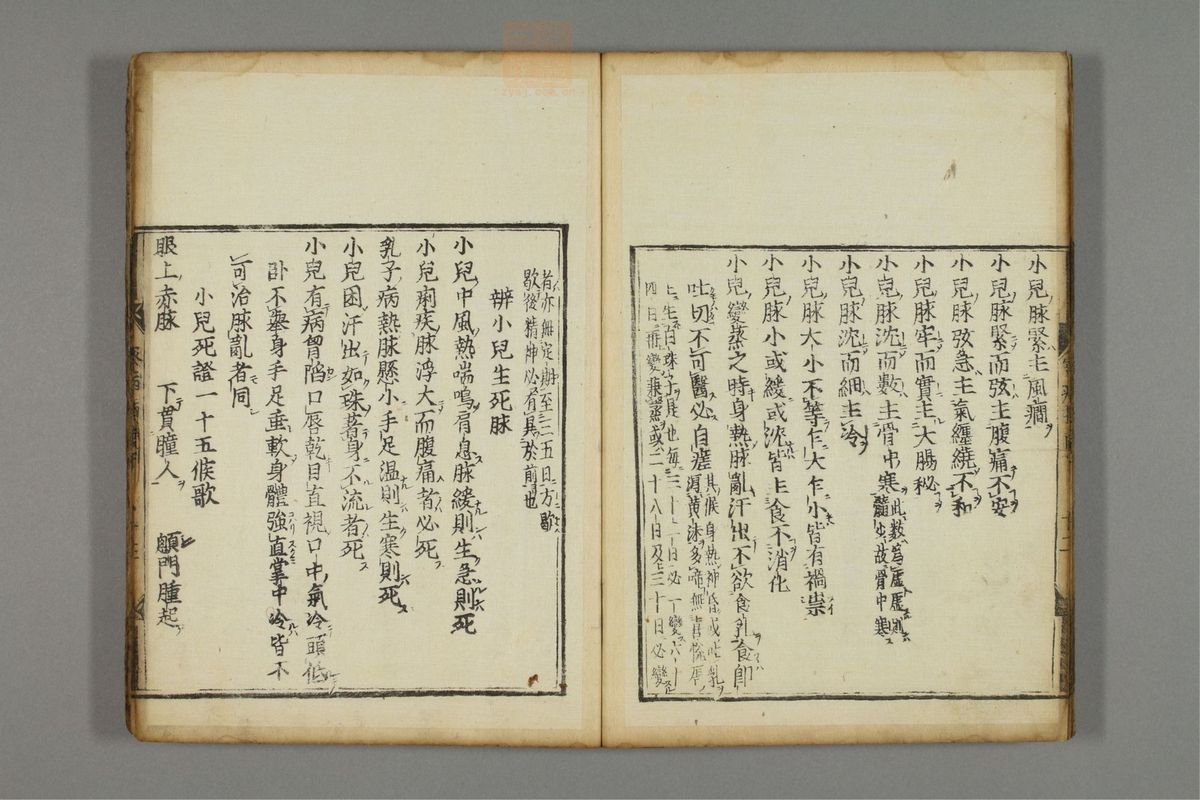 小兒脉緊主風癇
小兒脉緊而弦主腹痛不安
小兒脉弦急主氣纏繞不和
小兒脉牢而實主大腸秘
小兒脉沈而數主骨中寒此數爲虛虛則髓少故骨中寒
小兒脉沈而細主冷
小兒脉大小不等乍大乍小皆有禍祟
小兒脉小或緩或沈皆主食不消化
小兒變蒸之時身熱脉亂汗出不欲食乳食即
吐切不可醫必自瘥其候身熱神昏或吐乳瀉黃沫多啼無喜
上生白珠子是也每三十二日必一變六十
四日一變兼蒸或二十八日及三十日必變
者亦無定期至三五日方歇
歇後精神必有異於前也
辨小兒生死脉
小兒中風熱喘嗚肩息脉緩則生急則死
小兒痢疾脉浮大而腹痛者必死
乳子病熱脉懸小手足温則生寒則死
小兒困汗出如珠著身不流者死
小兒有病胷陷口唇乾目直視口中氣冷頭低
卧不舉身手足垂軟身體強直掌中冷皆不
可治脉亂者同
小兒死證一十五候歌
眼上赤脉　下貫瞳人　顖門腫起
zysj.com.cn